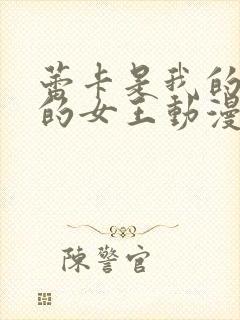 蕾卡是我的
的女王動漫
陳警官